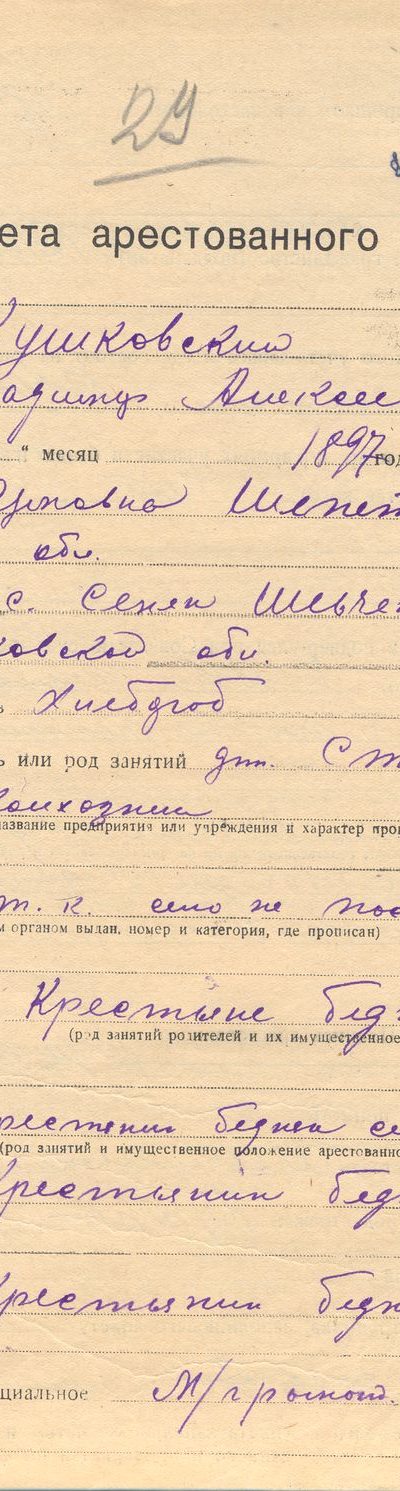 29
ета арестованного
ушковский
Алексее
“ месяц 1897 год
Шепет
обл.
с. Сенек Шевче
ковской обл
Хлебороб
ь или род занятий дом. Ст
Колхозник
название предприятия или учреждения и характер про
т. к. село не пас
м органом выдан, номер и категория, где прописан)
Крестьяне бед
(род занятий родителей и их имущественное
крестьянин бедняк се
(род занятий и имущественное положение арестованно
Крестьянин бед
Крестьянин бедн
циальное М/грамотн.